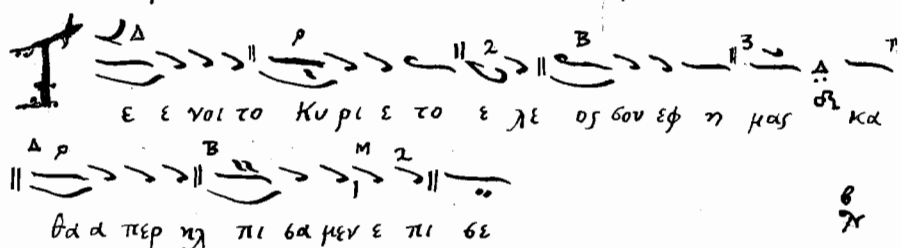 Γ ε ε νοι το Κυ ρι ε το ε λε ος σου εφ η μας κα
θα α περ ηλ πι σα μεν ε πι σε